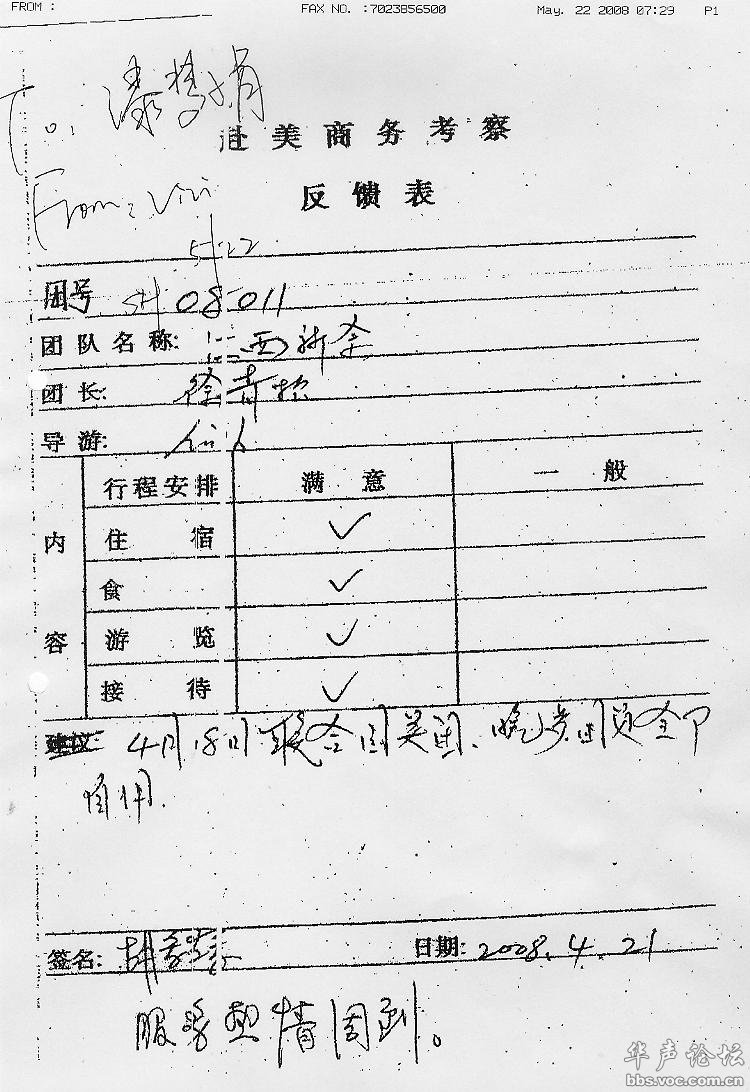 FROM : FAX NO. :7023856500 May. 22 2008 07:29 P1
To:
赴美商务考察
From: Vivi
反馈表
5/22
团号 SH 08-011
团队名称: 江西新余
团长:
导游:
行程安排 满意 一般
内容
住宿 ✓
食 ✓
游览 ✓
接待 ✓
建议: 4月18日联合国关闭、晚上团员全部
自由.
签名: 日期: 2008.4.21
服务热情周到。
华声论坛
bbs.voc.com.cn